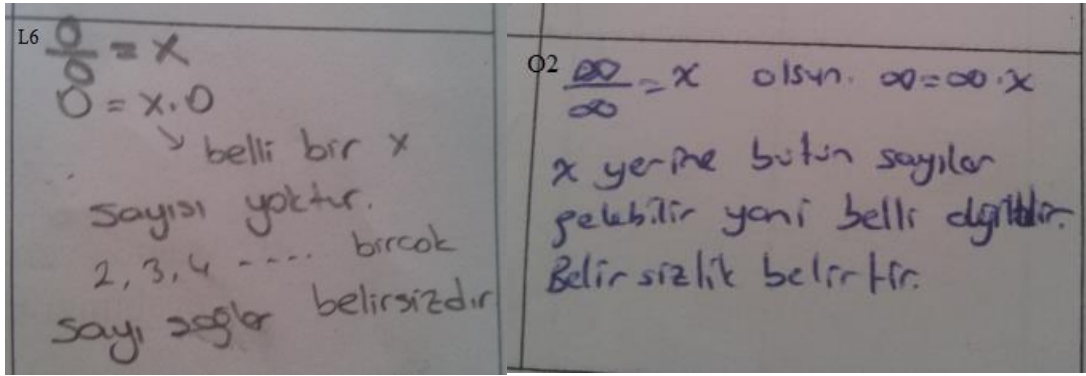 L6 0/0 = x
0 = x.0
belli bir x
sayısı yoktur.
2, 3, 4 ---- birçok
sayı sağlar belirsizdir
O2 ∞/∞ = x olsun. ∞=∞.x
x yerine bütün sayılar
gelebilir yani belli değildir.
Belirsizlik belirtir.